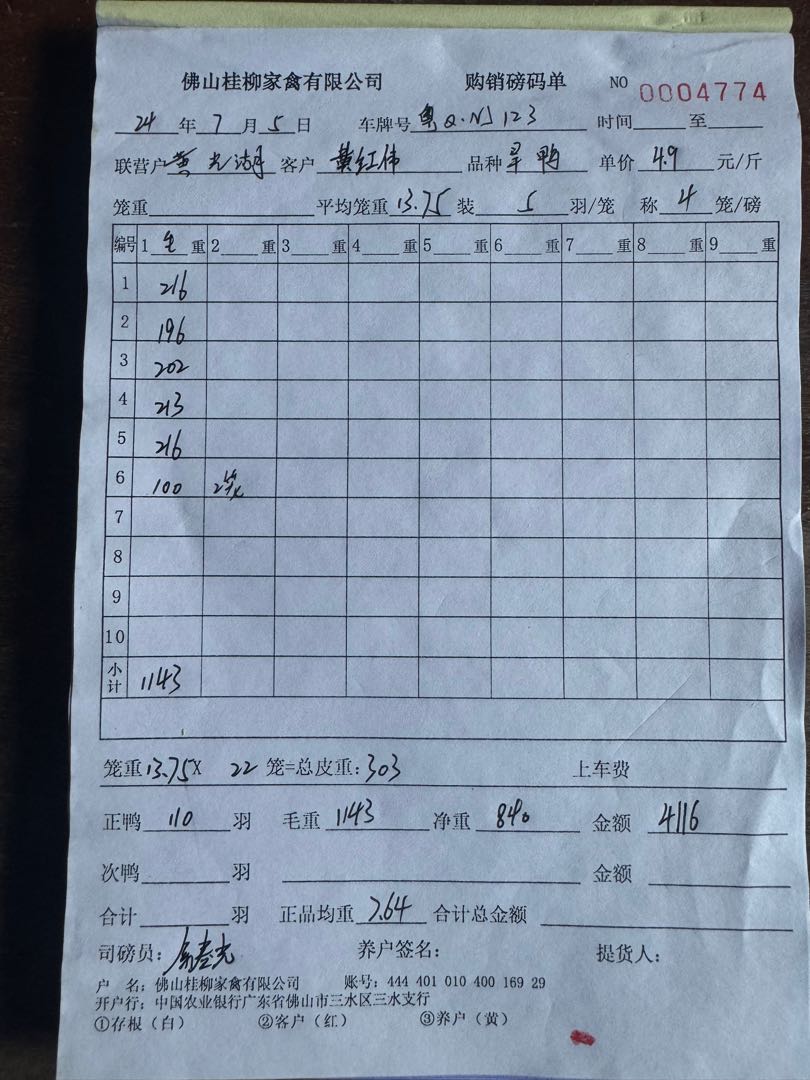 佛山桂柳家禽有限公司 购销磅码单 NO 0004774
24 年 7 月 5 日 车牌号 粤Q·NJ123 时间 至
联营户 黄光湖 客户 黄红伟 品种 旱鸭 单价 4.9 元/斤
笼重 平均笼重 13.75 装 5 羽/笼 称 4 笼/磅
编号 1 毛 重 2 重 3 重 4 重 5 重 6 重 7 重 8 重 9 重
1 216
2 196
3 202
4 213
5 216
6 100 2笼
7
8
9
10
小计 1143
笼重 13.75 X 22 笼=总皮重: 303 上车费
正鸭 110 羽 毛重 1143 净重 840 金额 4116
次鸭 羽 金额
合计 羽 正品均重 7.64 合计总金额
司磅员: 养户签名: 提货人:
户 名: 佛山桂柳家禽有限公司 账号: 444 401 010 400 169 29
开户行: 中国农业银行广东省佛山市三水区三水支行
①存根(白) ②客户(红) ③养户(黄)